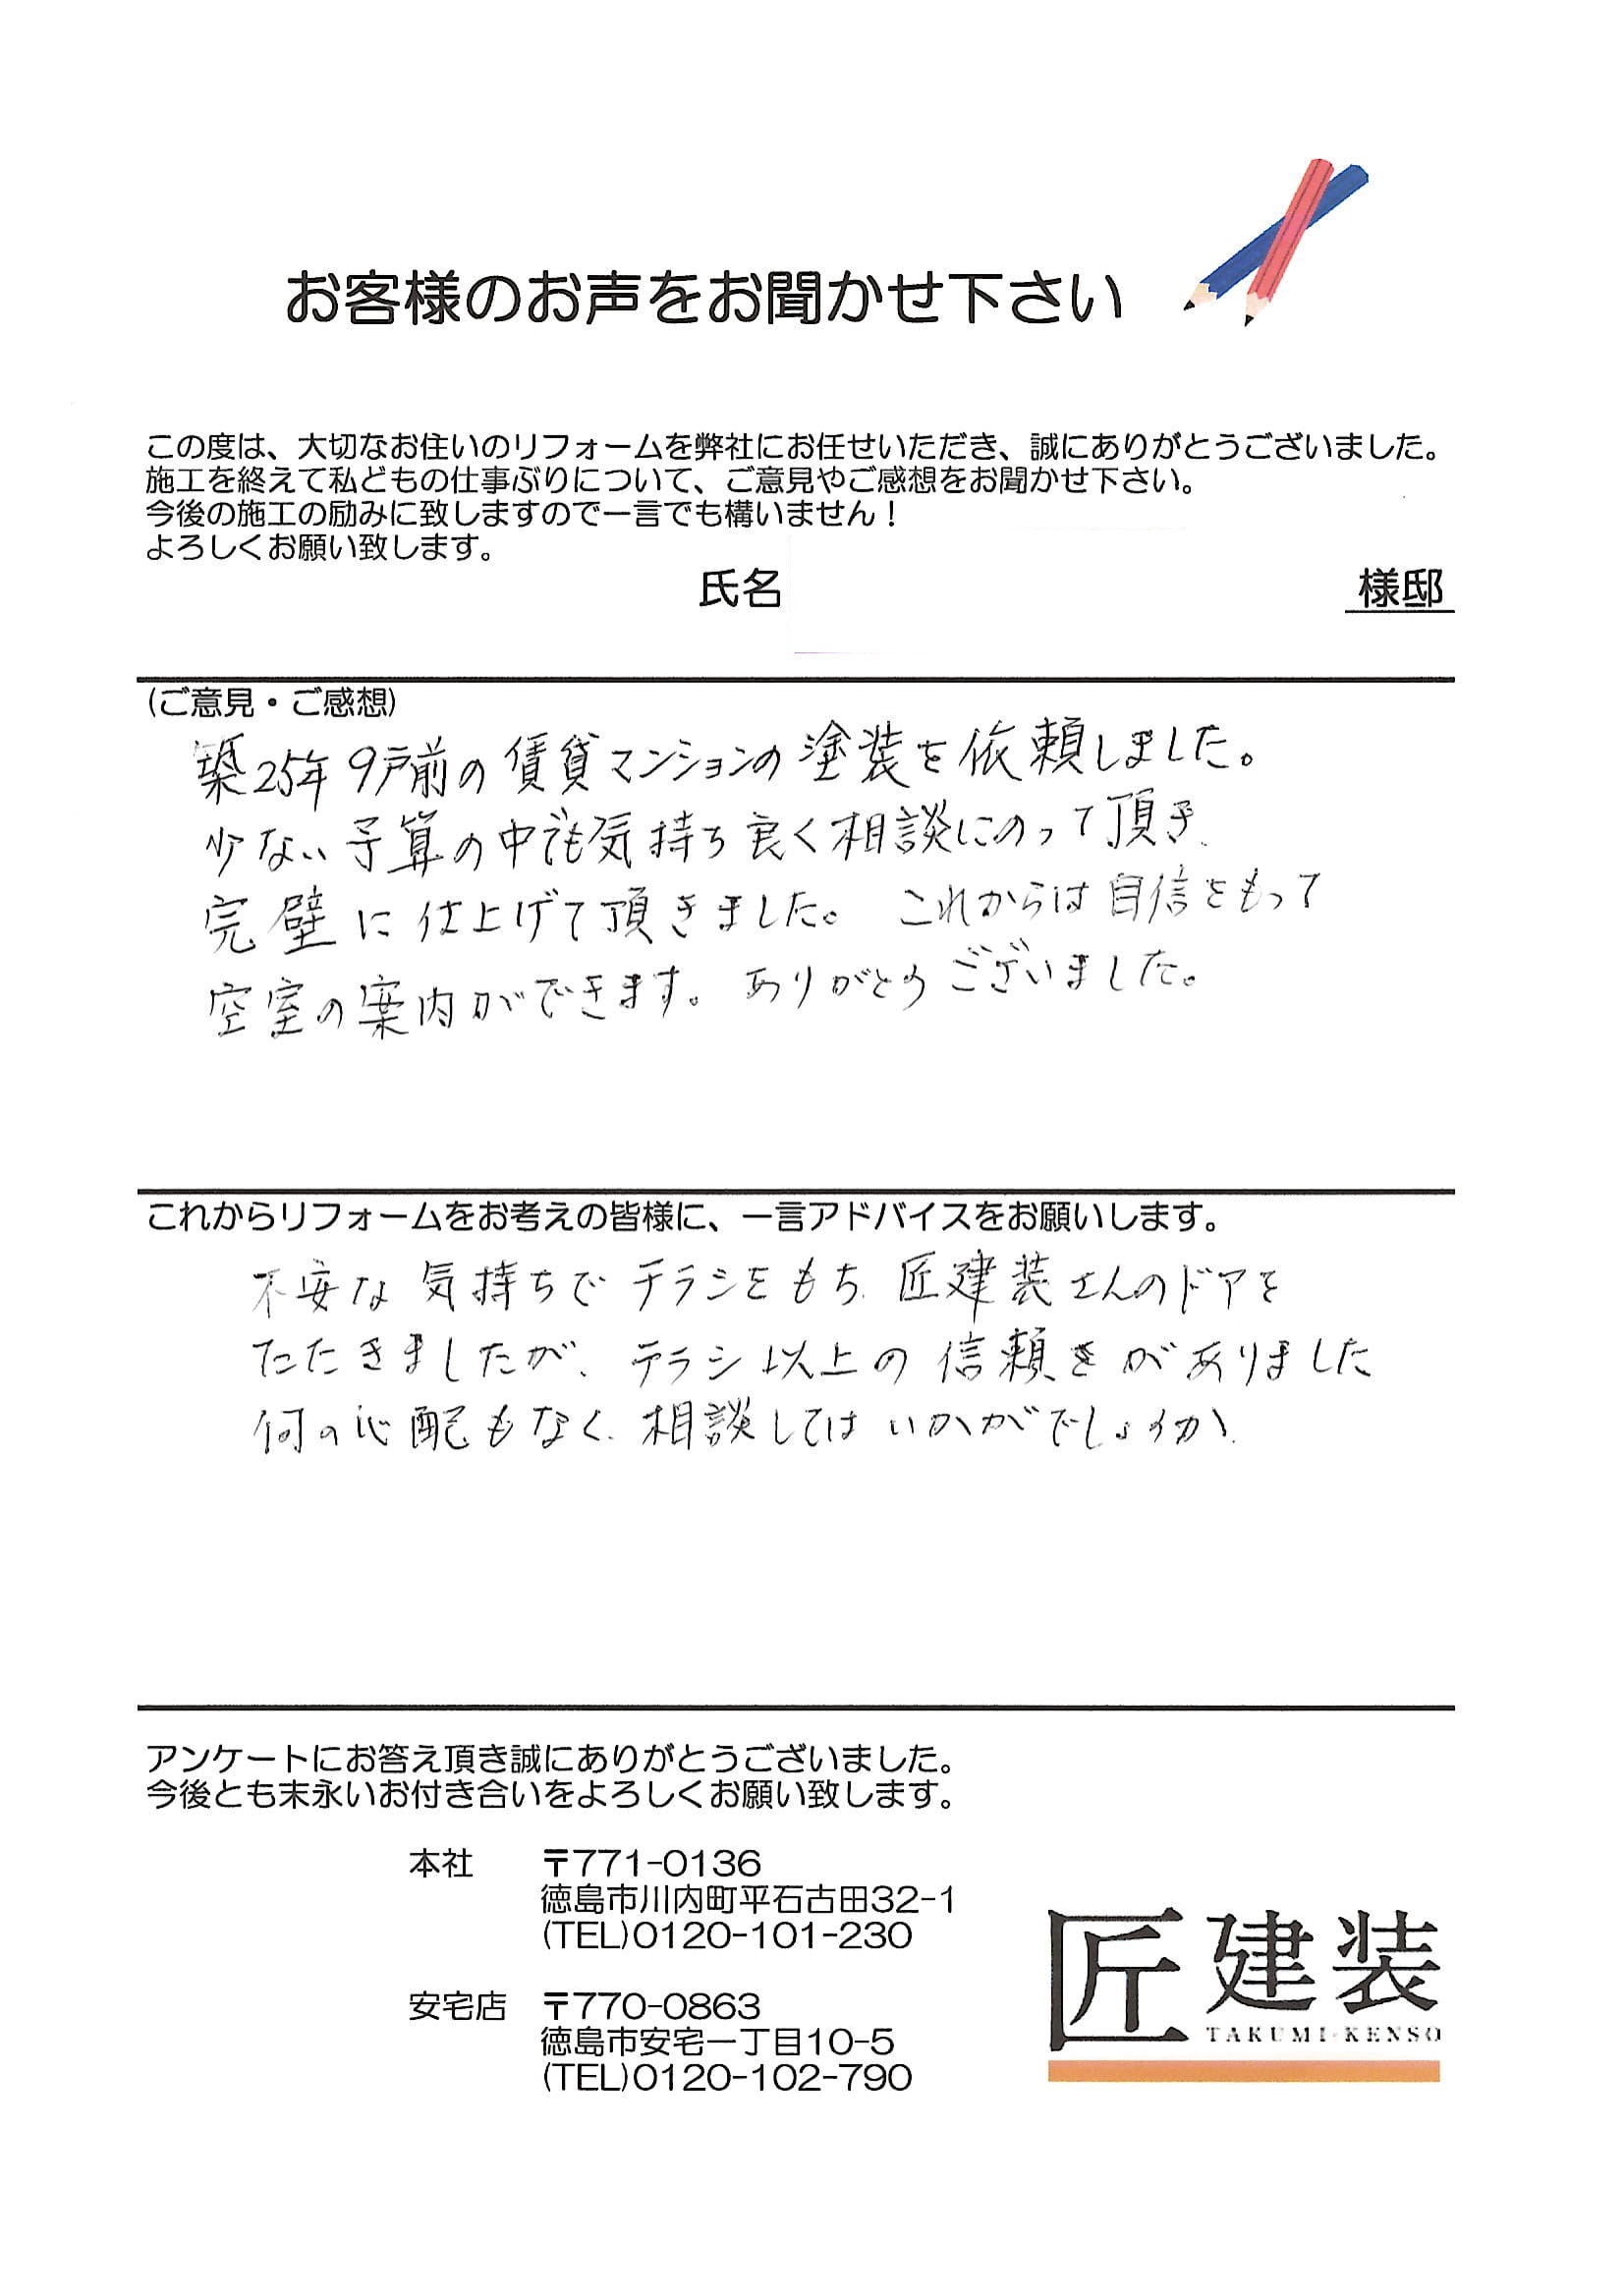 お客様のお声をお聞かせ下さい
この度は、大切なお住いのリフォームを弊社にお任せいただき、誠にありがとうございました。
施工を終えて私どもの仕事ぶりについて、ご意見やご感想をお聞かせ下さい。
今後の施工の励みに致しますので一言でも構いません！
よろしくお願い致します。
氏名 様邸
(ご意見・ご感想)
築25年 9戸前の賃貸マンションの塗装を依頼しました。
少ない予算の中でも気持ち良く相談にのって頂き、
完璧に仕上げて頂きました。これからは自信をもって
空室の案内ができます。ありがとうございました。
これからリフォームをお考えの皆様に、一言アドバイスをお願いします。
不安な気持ちでチラシをもち、匠建装さんのドアを
たたきましたが、チラシ以上の信頼さがありました
何の心配もなく、相談してはいかがでしょうか、
アンケートにお答え頂き誠にありがとうございました。
今後とも末永いお付き合いをよろしくお願い致します。
本社 〒771-0136
徳島市川内町平石古田32-1
(TEL)0120-101-230
安宅店 〒770-0863
徳島市安宅一丁目10-5
(TEL)0120-102-790
匠建装
TAKUMI-KENSO